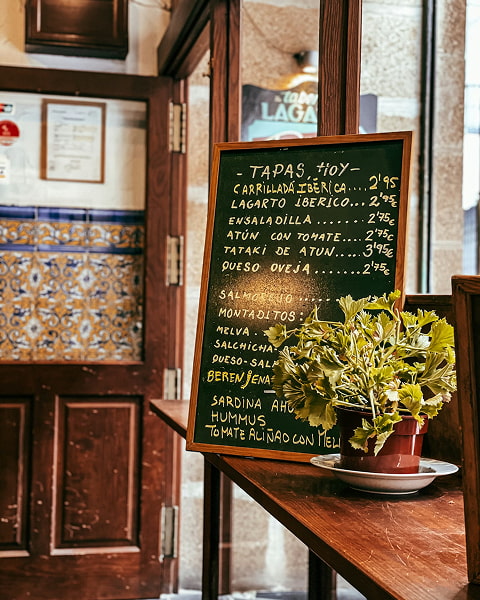 - TAPAS, HOY -
CARRILLADA IBÉRICA.... 2'95
LAGARTO IBERICO... 2'95
ENSALADILLA ....... 2'75€
ATÚN CON TOMATE.... 2'75€
TATAKI DE ATUN.... 3'95€
QUESO OVEJA ....... 2'75€
SALMOREJO ......
MONTADITOS:
MELVA....
SALCHICHA
QUESO-SAL
BERENJENA
SARDINA AHU
HUMMUS
TOMATE ALIÑAO CON MEL
LAGA